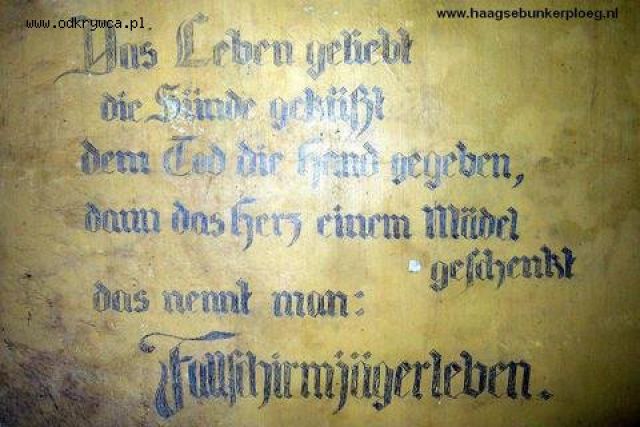 www.odkrywca.pl
www.haagsebunkerploeg.nl
Das Leben geliebt
die Sünde geküßt
dem Tod die Hand gegeben,
dann das Herz einem Mädel
geschenkt
das nennt man:
Fallschirmjägerleben.